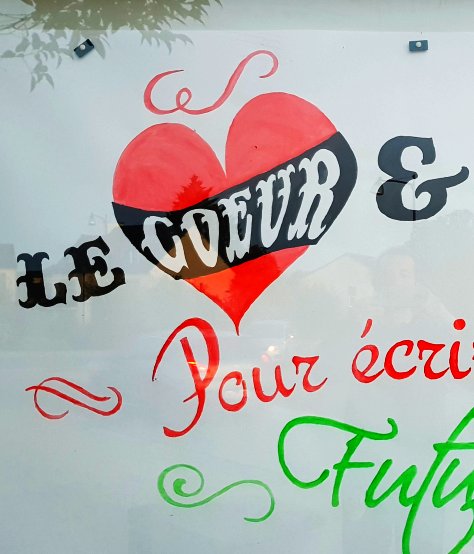 LE COEUR &
Pour écri
Futu